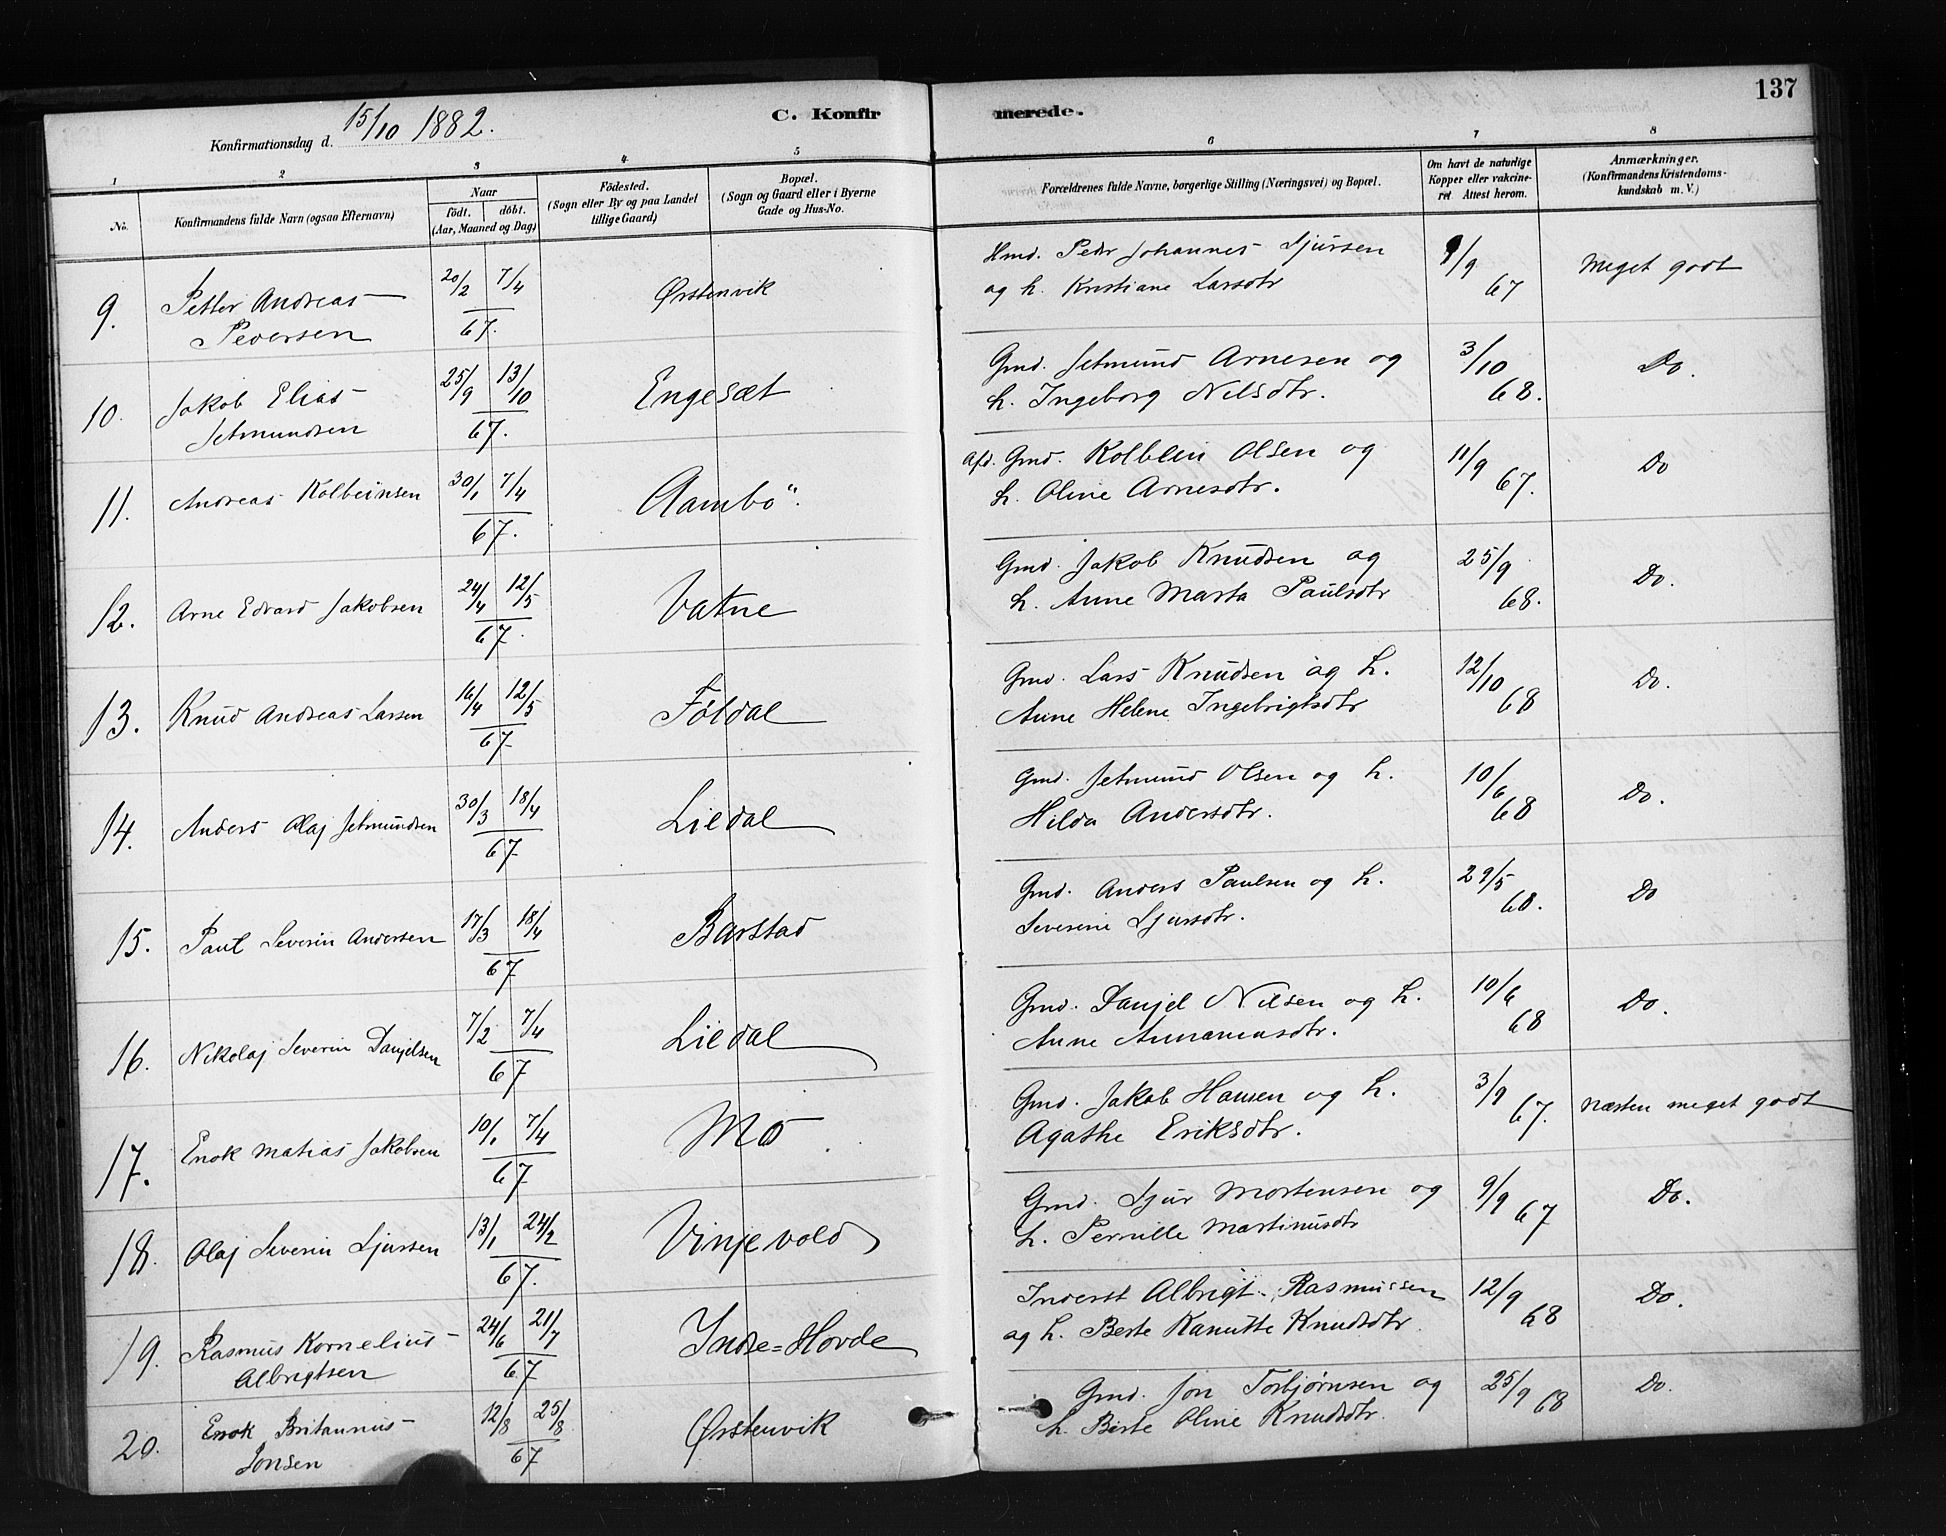 137
Konfirmationsdag d. 15/10 1882.
C. Konfirmerede.
1 2 3 4 5 6 7 8
No.
Konfirmandens fulde Navn (ogsaa Efternavn)
Naar
født. døbt.
(Aar, Maaned og Dag)
Fødested.
(Sogn eller By og paa Landet
tillige Gaard)
Bopæl.
(Sogn og Gaard eller i Byerne
Gade og Hus-No.
Forældrenes fulde Navne, borgerlige Stilling (Næringsvei) og Bopæl.
Om havt de naturlige
Kopper eller vakcine-
ret Attest herom.
Anmærkninger.
(Konfirmandens Kristendoms-
kundskab m. V.)
9. Petter Andreas Pedersen 20/2 7/4 67. Ørstenvik
Hmd. Peder Johannes Sjursen
og h. Kristiane Larsdtr 9/9 67 Meget godt
10. Jakob Elias Jetmundsen 25/9 13/10 67. Engesæt
Gmd. Jetmund Arnesen og
h. Ingeborg Nilsdtr. 3/10 68. Do.
11. Andreas Kolbeinsen 30/1 7/4 67. Aambø.
Afd. Gmd. Kolbein Olsen og
h. Oline Arnesdtr. 11/9 67. Do
12. Arne Edvard Jakobsen 24/4 12/5 67. Vatne
Gmd. Jakob Knudsen og
h. Anne Marta Paulsdtr 25/9 68. Do.
13. Knud Andreas Larsen 16/4 12/5 67. Føldal
Gmd. Lars Knudsen og h.
Anne Helene Ingebrigtsdtr 12/10 68 Do.
14. Anders Olaj Jetmundsen 30/3 18/4 67 Liedal
Gmd. Jetmund Olsen og h.
Hilda Andersdtr. 10/6 68 Do.
15. Paul Severin Andersen 17/3 18/4 67 Barstad
Gmd. Anders Paulsen og h.
Severine Sjursdtr. 29/5 68. Do
16. Nikolaj Severin Danjelsen 7/2 7/4 67 Liedal
Gmd. Danjel Nilsen og h.
Anne Annaniasdtr. 10/6 68 Do.
17. Enok Matias Jakobsen 10/1 7/4 67 Mo
Gmd. Jakob Hansen og h.
Agathe Eriksdtr. 3/9 67. Næsten meget godt
18. Olaj Severin Sjursen 13/1 24/2 67. Vinjevold
Gmd. Sjur Mortensen og
h. Pernille Martinusdtr 9/9 67 Do.
19. Rasmus Kornelius Albrigtsen 24/6 21/7 67 Indre=Hovde
Inderst Albrigt Rasmussen
og h. Berte Kanutte Knudsdtr 12/9 68 Do.
20. Enok Britannus Jonsen 12/8 25/8 67 Ørstenvik
Gmd. Jon Torbjørnsen og
h. Berte Oline Knudsdtr. 25/9 68 Do.